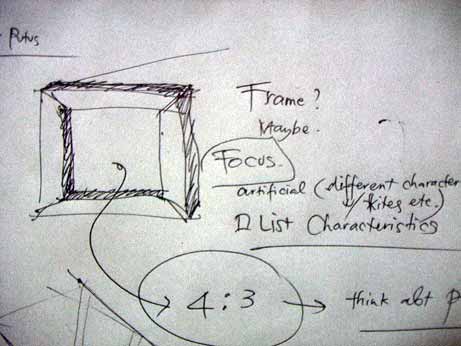 Putus
Frame?
Maybe.
Focus.
artificial (different character
kites etc.)
List Characteristics
4:3
think abt p